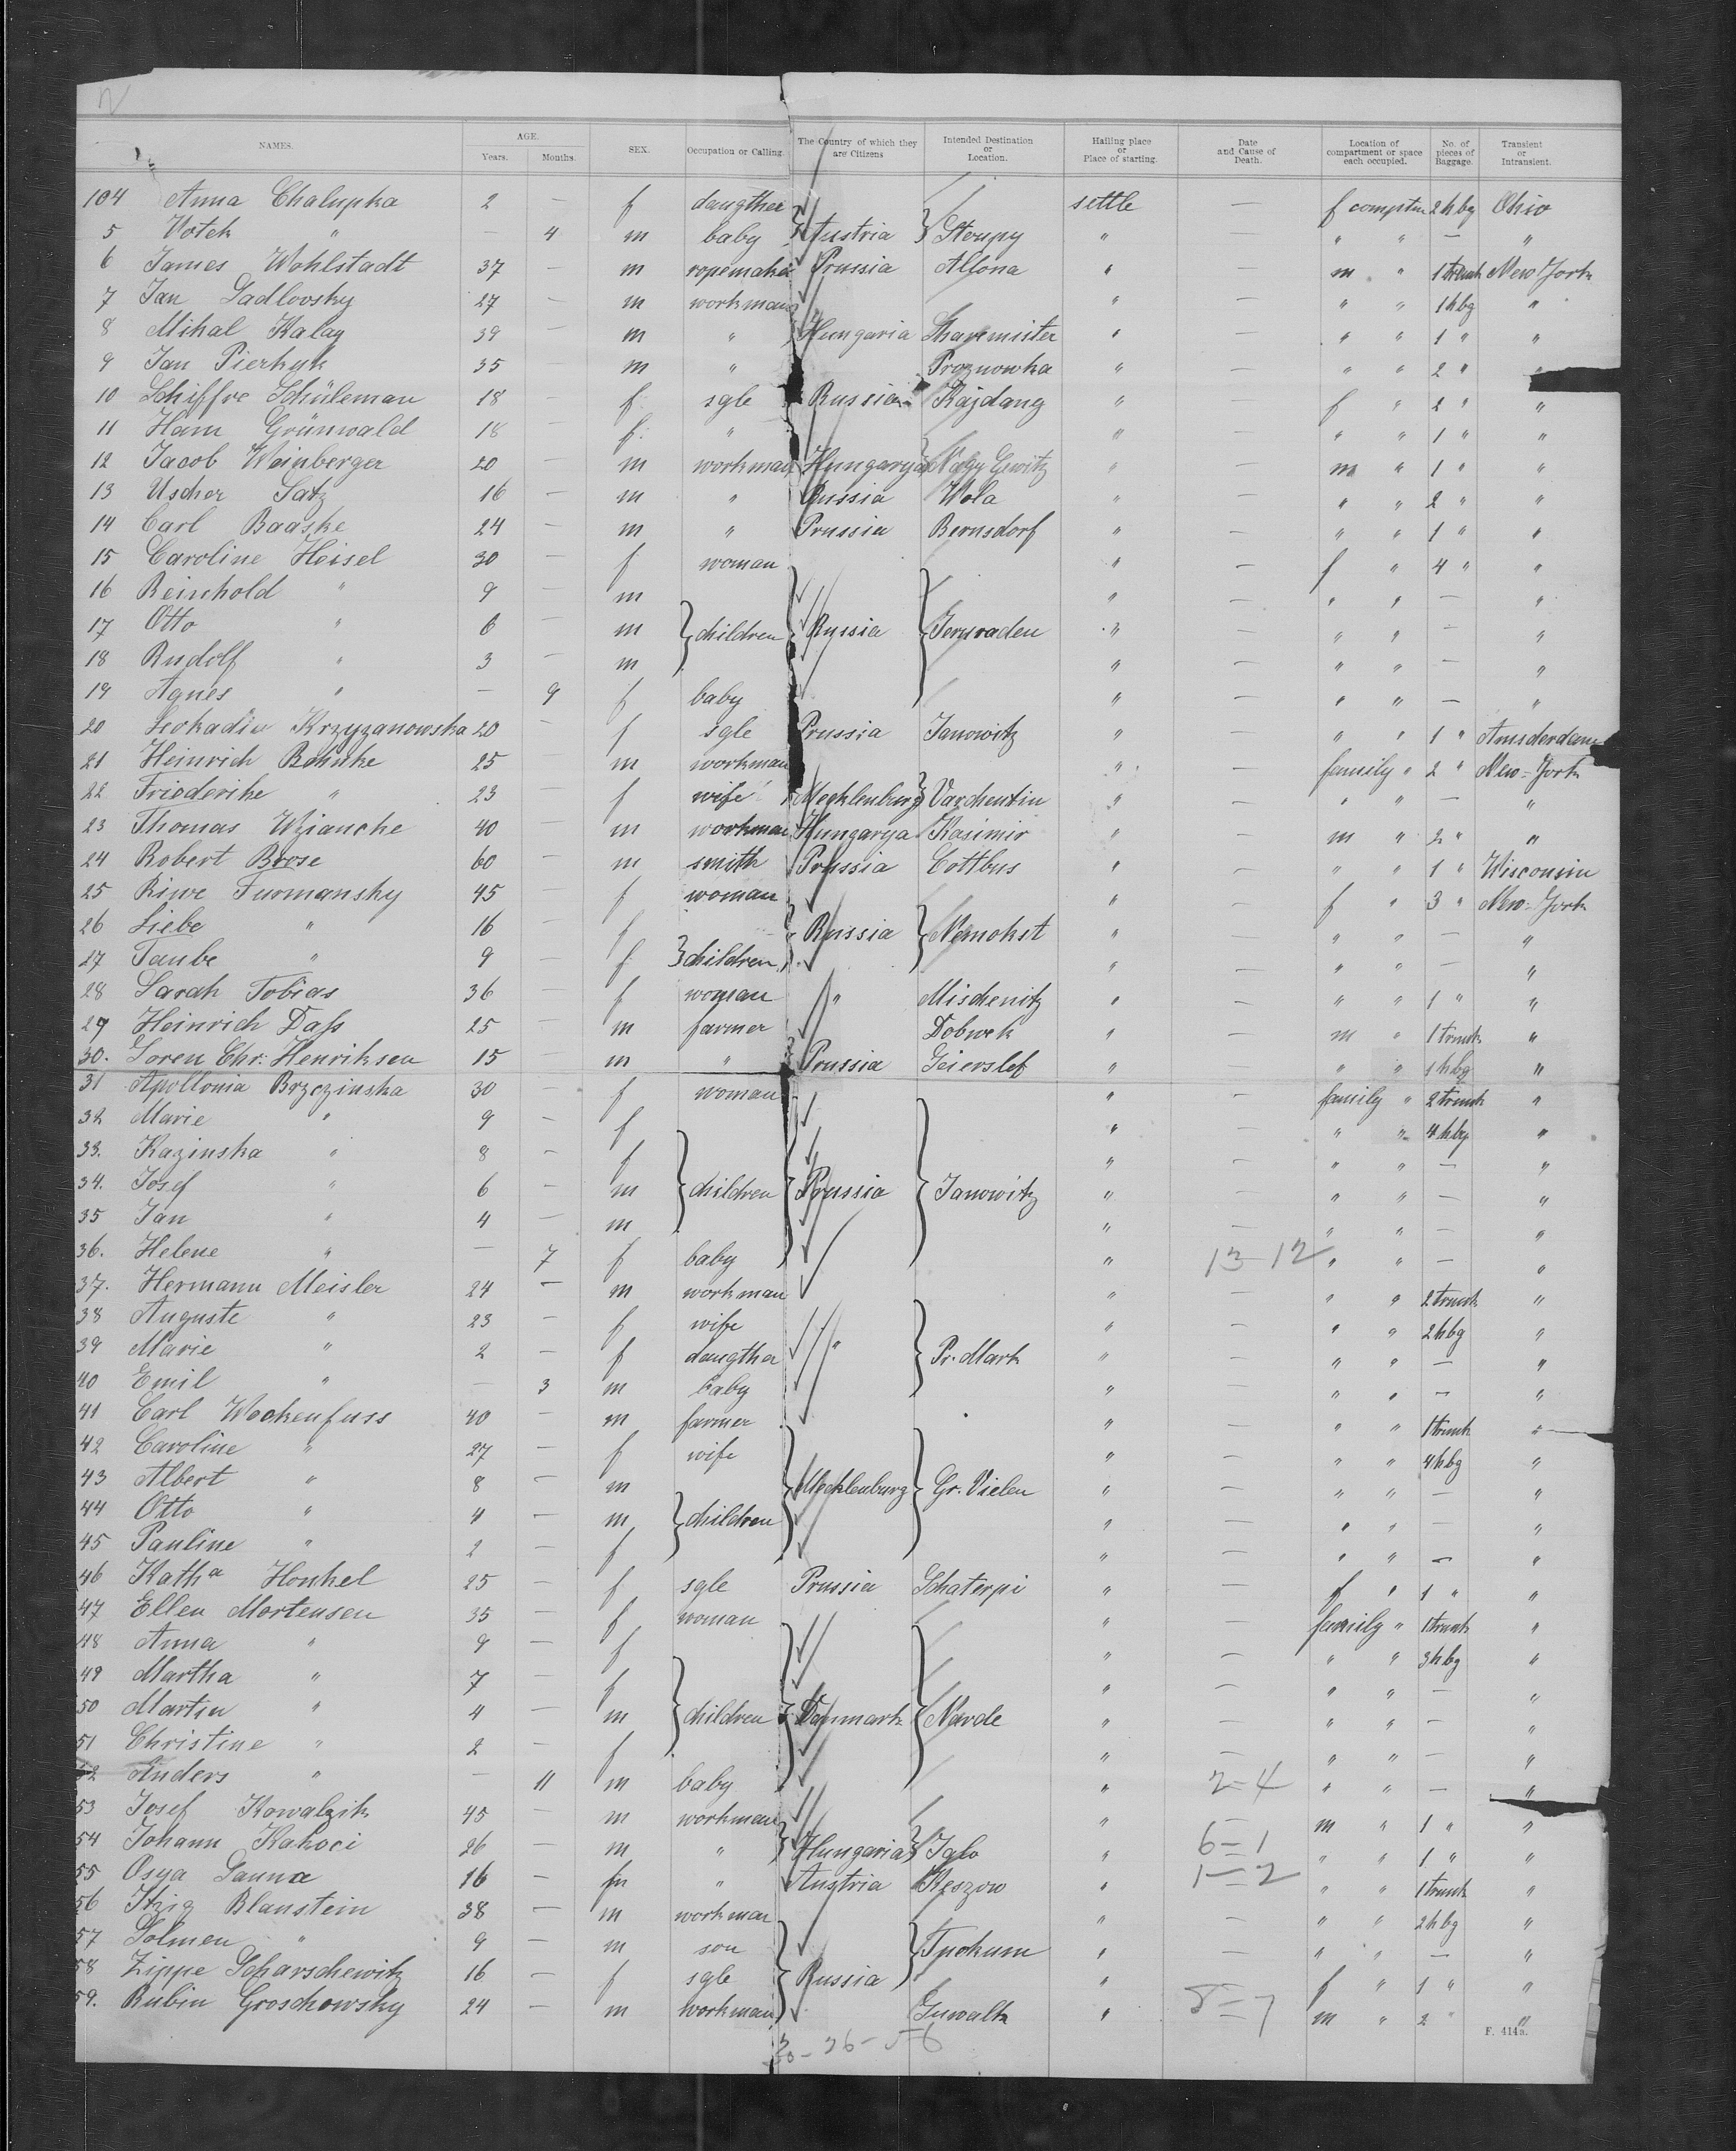 NAMES. AGE. Years. Months. SEX. Occupation or Calling. The Country of which they are Citizens Intended Destination or Location. Hailing place or Place of starting. Date and Cause of Death. Location of compartment or space each occupied. No. of pieces of Baggage. Transient or Intransient.
104 Anna Chalupka 2 — f daugther settle — f comptm 2 hbg Ohio
5 Votek " — 4 m baby Austria Stoupy " " " — "
6 James Wohlstadt 37 — m ropemaker Prussia Altona " — m " 1 trunk New York
7 Jan Sadlovsky 27 — m workman " — " " 1 hbg "
8 Mihal Kalay 39 — m " Hungaria " — " " 1 " "
9 Jan Pierkyk 35 — m " Proznowka " — " " 2 "
10 Schiffre Schüleman 18 — f sgle Russia Rajdang " — f " 2 " "
11 Ham Grünwald 18 — f " " — " " 1 " "
12 Jacob Weinberger 20 — m workman Hungarya Nagy Gewitz " — m " 1 " "
13 Uscher Satz 16 — m " Russia Wola " — " " 2 " "
14 Carl Baaske 24 — m " Prussia Bernsdorf " — " " 1 " "
15 Caroline Heisel 30 — f woman " — f " 4 " "
16 Reinhold " 9 — m " — " " — "
17 Otto " 6 — m children Russia " — " " — "
18 Rudolf " 3 — m " — " " — "
19 Agnes " — 9 f baby " — " " — "
20 Leokadie Krzyzanowska 20 — f sgle Prussia Janowitz " — " " 1 " Amsderdam
21 Heinrich Bohnke 25 — m workman " — family " 2 " New-York
22 Friederike " 23 — f wife Mecklenburg Varchentin " — " " — "
23 Thomas Wzianche 40 — m workman Hungarya Kasimir " — m " 2 " "
24 Robert Brose 60 — m smith Prussia Cottbus " — " " 1 " Wisconsin
25 Riwe Furmansky 45 — f woman " — f " 3 " New-York
26 Liebe " 16 — f Russia Nemokst " — " " — "
27 Taube " 9 — f children " — " " — "
28 Sarah Tobias 36 — f woman " Mischenitz " — " " 1 " "
29 Heinrich Daß 25 — m farmer Dobwek " — m " 1 trunk "
30. Soren Chr. Henriksen 15 — m " Prussia Geierslef " — " " 1 hbg "
31 Apollonia Brzezinska 30 — f woman " — family " 2 trunk "
32 Marie " 9 — f " — " " 4 hbg "
33. Kazinska " 8 — f " — " " — "
34. Josef " 6 — m children Prussia Janowitz " — " " — "
35 Jan " 4 — m " — " " — "
36. Helene " — 7 f baby " 13-12 " " — "
37. Hermann Meisler 24 — m workman " — " " 2 trunk "
38 Auguste " 23 — f wife " — " " 2 hbg "
39 Marie " 2 — f daugther " Pr. Mark " — " " — "
40 Emil " — 3 m baby " — " " — "
41 Carl Wockenfuss 40 — m farmer " — " " 1 trunk "
42 Caroline " 27 — f wife " — " " 4 hbg "
43 Albert " 8 — m Mecklenburg Gr. Vielen " — " " — "
44 Otto " 4 — m children " — " " — "
45 Pauline " 2 — f " — " " — "
46 Kath a Honkel 25 — f sgle Prussia Schaterpi " — f " 1 " "
47 Ellen Mortensen 35 — f woman " — family " 1 trunk "
48 Anna " 9 — f " — " " 3 hbg "
49 Martha " 7 — f " — " " — "
50 Martin " 4 — m children Danmark Narde " — " " — "
51 Christine " 2 — f " — " " — "
52 Anders " — 11 m baby " 2-4 " " — "
53 Josef Kowalzik 45 — m workman " — m " 1 " "
54 Johann Kakoci 26 — m " Hungaria Iglo " 6=1 " " 1 " "
55 Osya Sauna 16 — m " Austria Reszow " 1-2 " " 1 trunk "
56 Itzig Blaustein 38 — m workman " — " " 2 hbg "
57 Solmen " 9 — m son Tpokum " — " " — "
58 Zippe Scharschewitz 16 — f sgle Russia " — f " 1 " "
59. Rubin Groschowsky 24 — m workman Suwalk " 8=7 m " 2 " "
F. 414a.
30-26-56